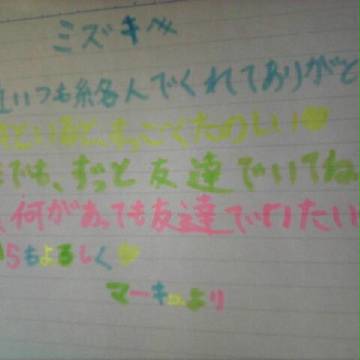 ミズキへ
いつも絡んでくれてありがと
といると、すっごくたのしい
でも、ずっと友達でいてね
何があっても友達でいたい
らもよろしく
マーキュより